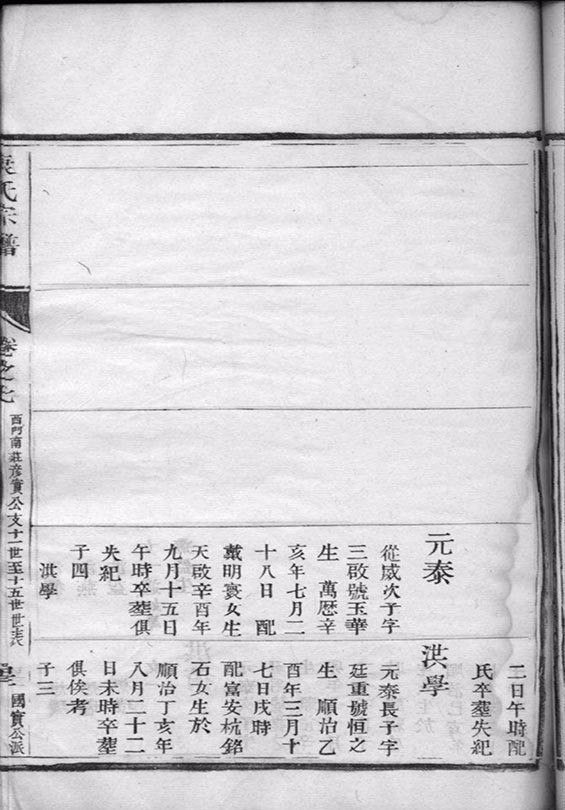 二日午時配
氏卒塟失紀
元泰
從威次子字
三啟號玉華
生　萬歷辛
亥年七月二
十八日　配
戴明寰女生
天啟辛酉年
九月十五日
午時卒塟俱
失紀
子四
洪學
洪學
元泰長子字
廷重號恒之
生　順治乙
酉年三月十
七日戌時
配富安杭銘
石女生於
順治丁亥年
八月二十二
日未時卒塟
俱俟考
子三
氏宗譜
卷之七
西阿南莊彥實公支十一世至十五世世表
國實公派